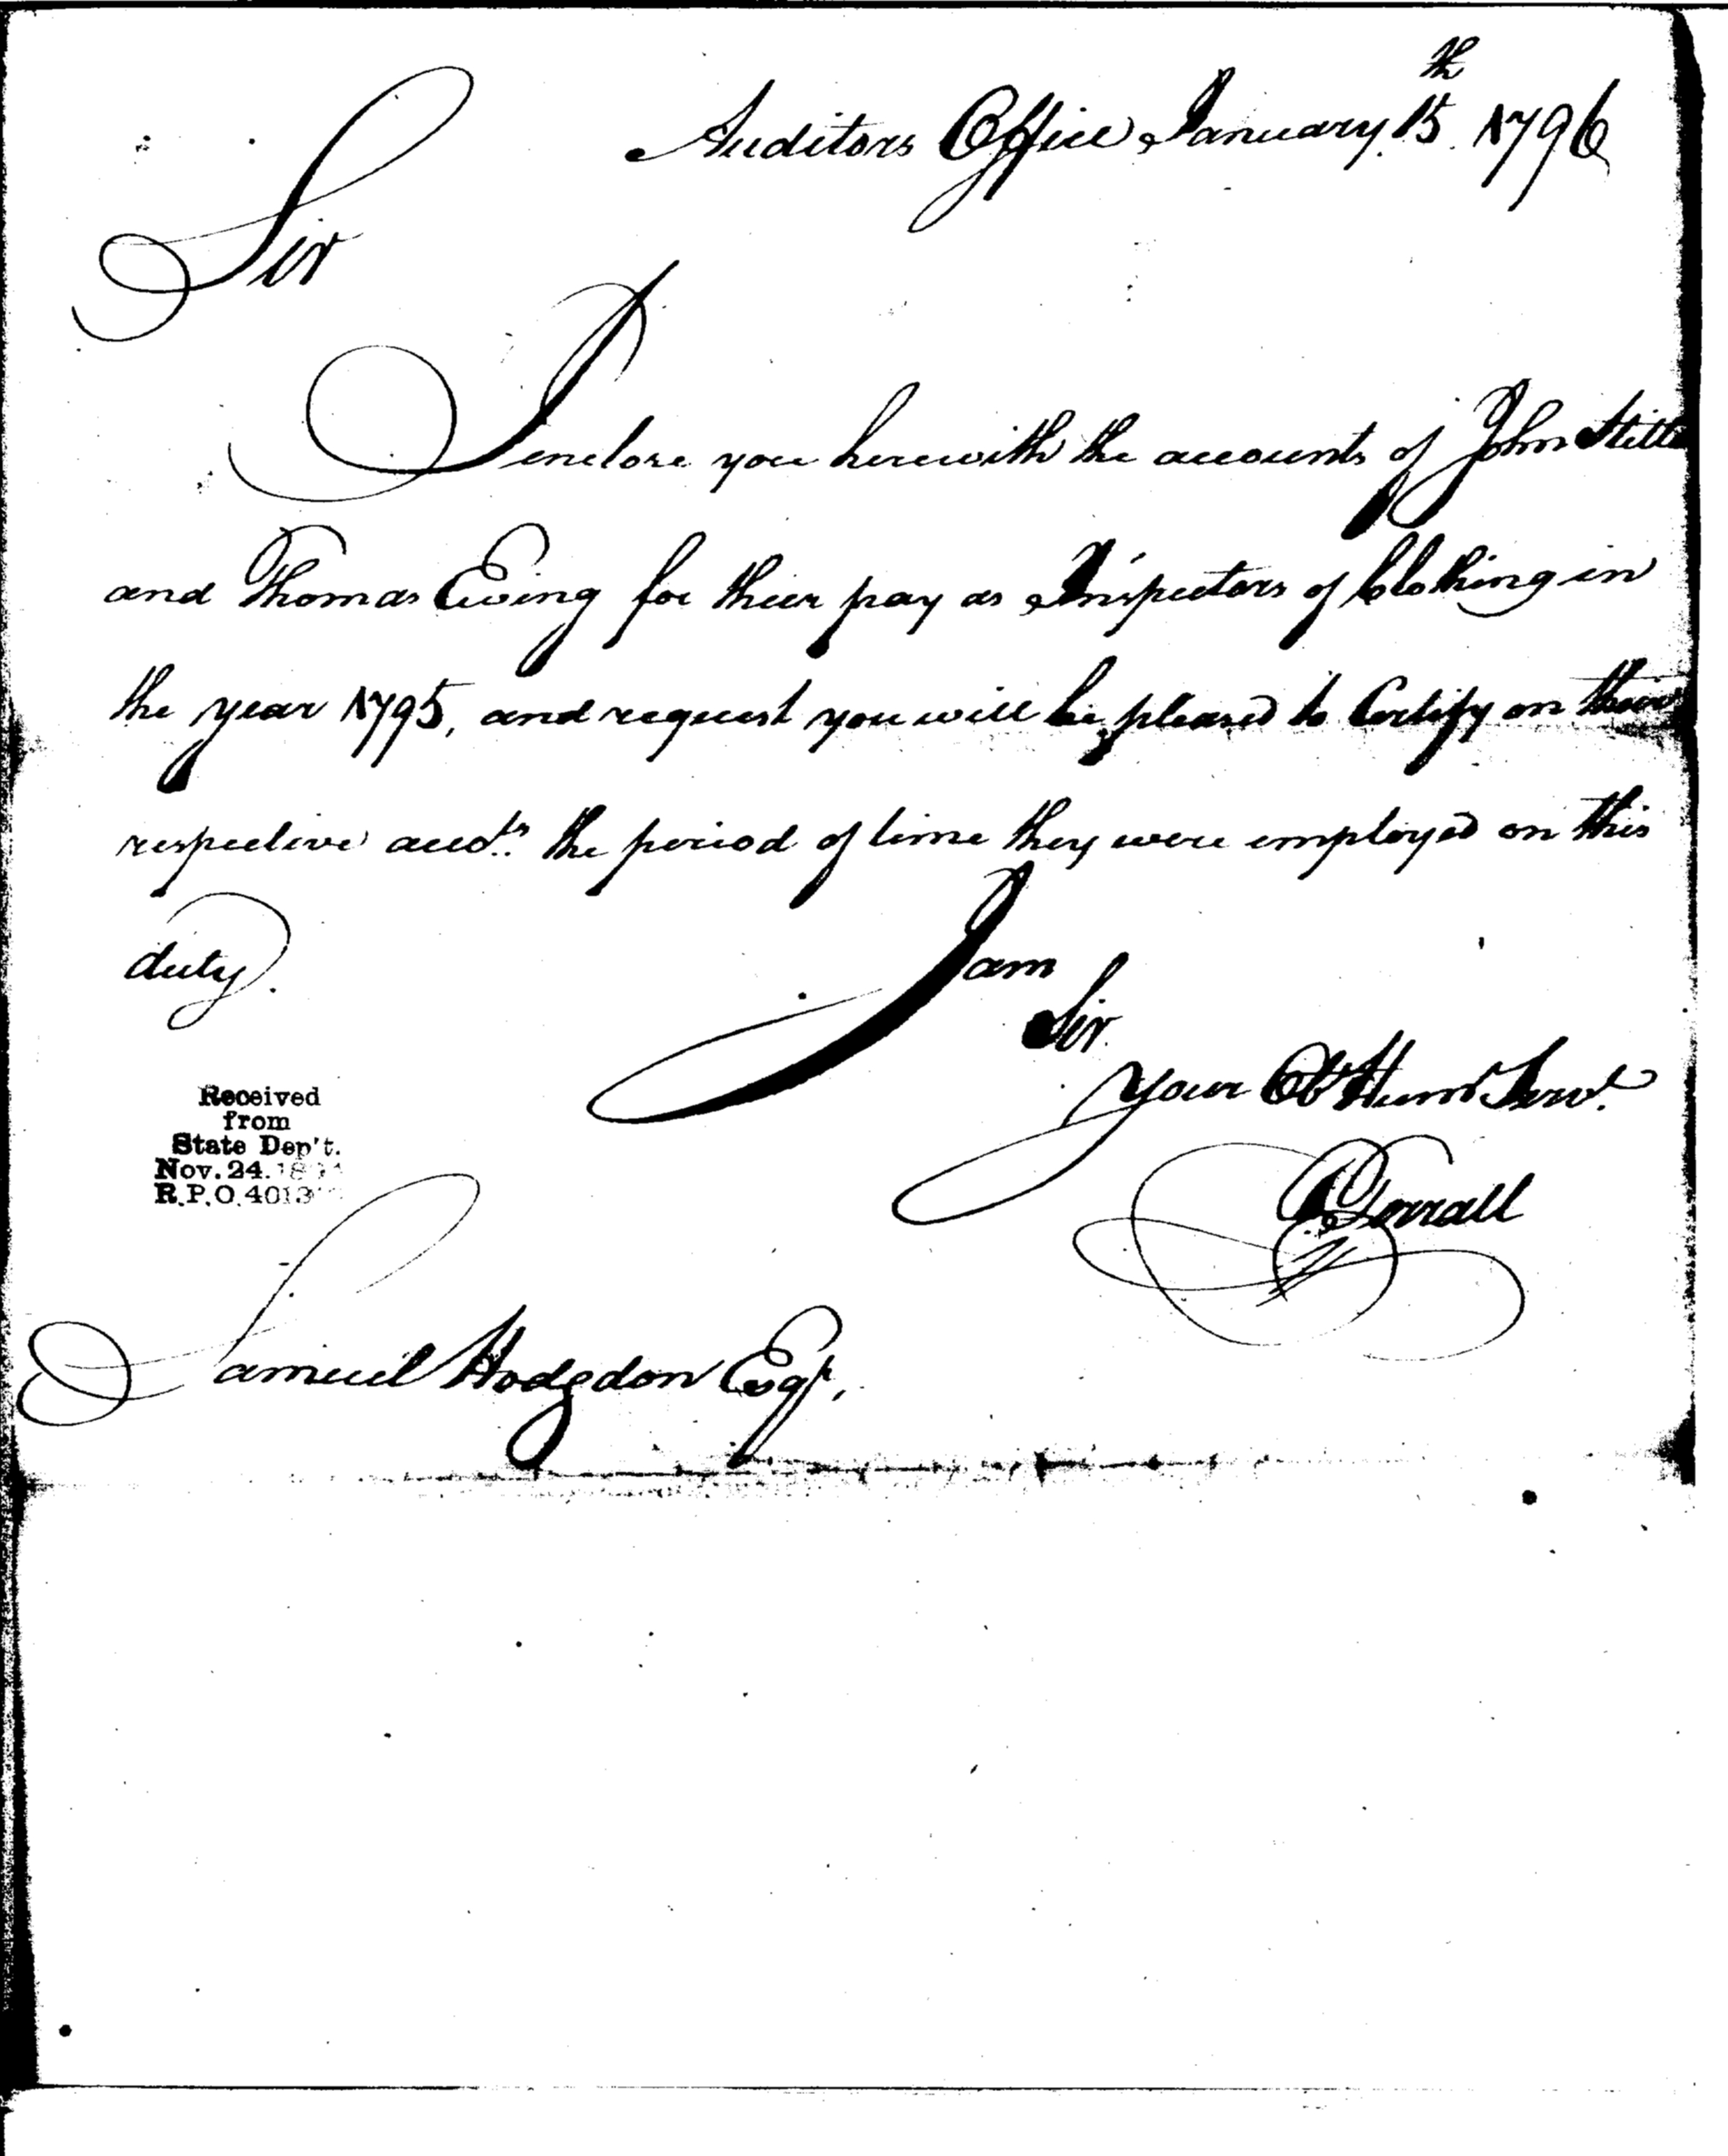 Auditors Office January 15th 1796
Sir
I enclose you herewith the accounts of John Stille
and Thomas Ewing for their pay as Inspectors of Clothing in
the year 1795, and request you will be pleased to Certify on their
respective accots. the period of time they were employed on this
duty.
I am
Sir.
Your Ob Hum Servt.
Received
from
State Dep't.
Nov. 24.
R.P.O. 4013
Samuel Hodgdon Esqr.